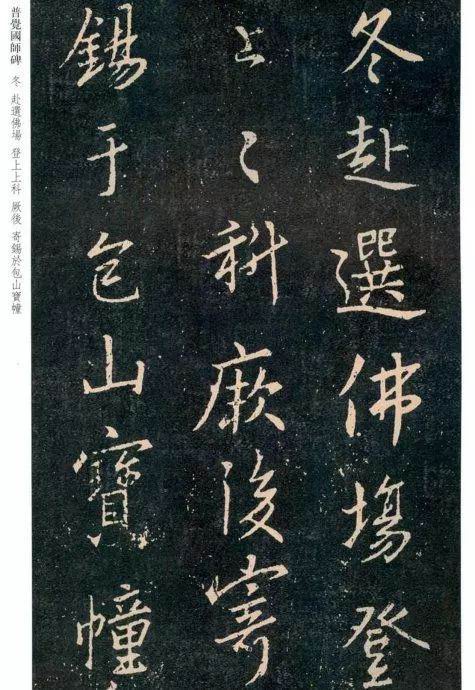 冬赴選佛場登
上〻科厥後寄
錫于包山寶幢
普覺國師碑 冬 赴選佛場 登上上科 厥後 寄錫於包山寶幢